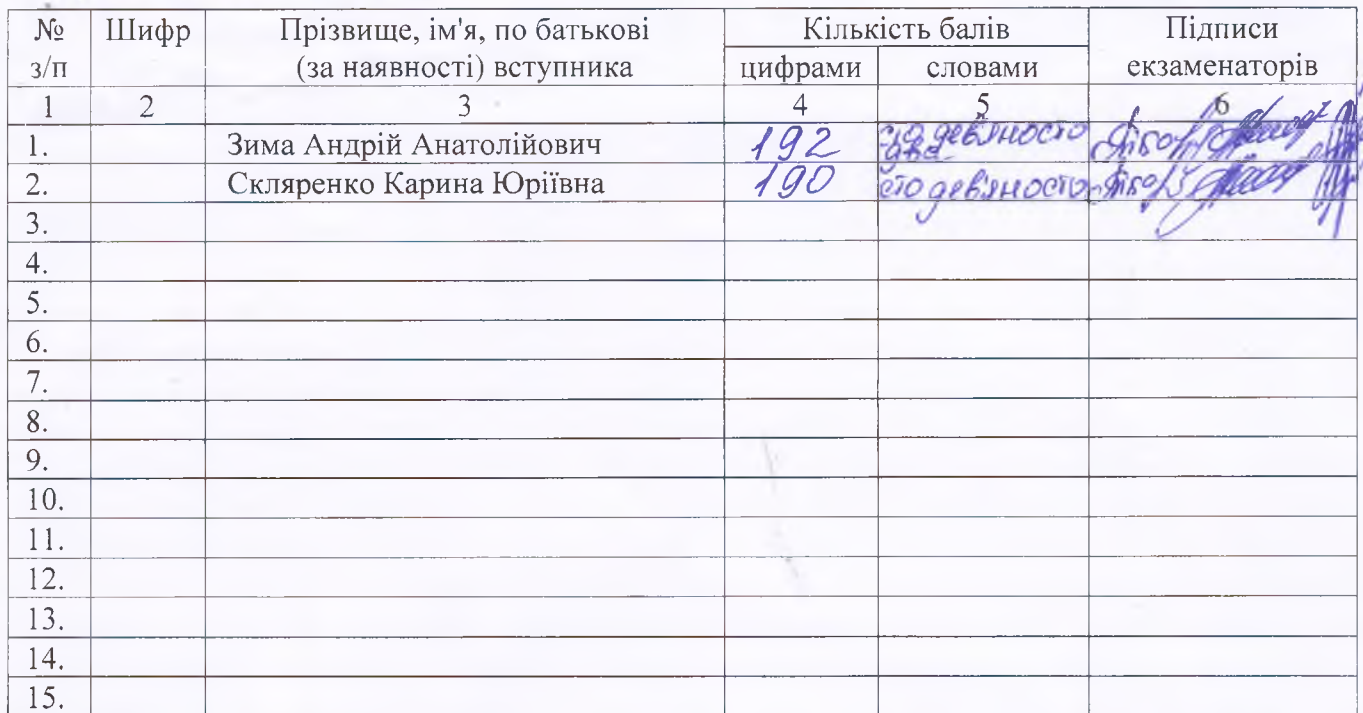 № з/п Шифр Прізвище, ім'я, по батькові (за наявності) вступника Кількість балів Підписи екзаменаторів
цифрами словами
1 2 3 4 5 6
1. Зима Андрій Анатолійович 192 сто дев'яносто два
2. Скляренко Карина Юріївна 190 сто дев'яносто
3.
4.
5.
6.
7.
8.
9.
10.
11.
12.
13.
14.
15.